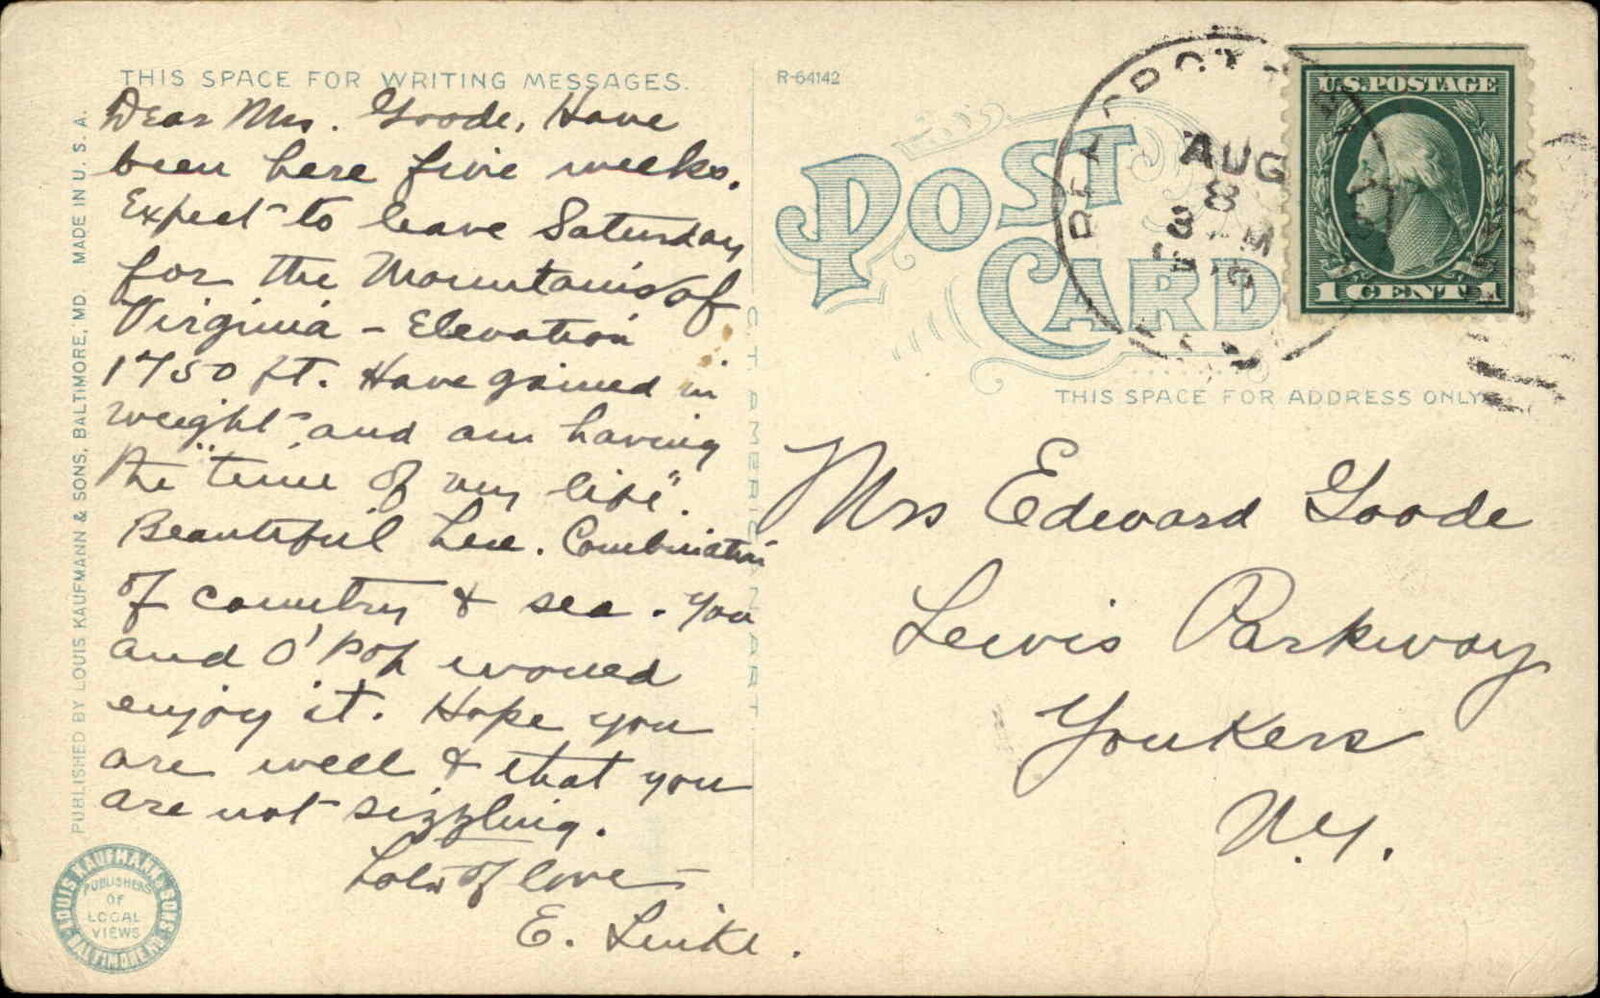 THIS SPACE FOR WRITING MESSAGES.
Dear Mrs. Goode, Have
been here five weeks.
Expect to leave Saturday
for the Mountains of
Virginia – Elevation
1750 ft. Have gained in
weight and am having
the "time of my life".
Beautiful here. Combination
of country & sea. You
and O'Pop would
enjoy it. Hope you
are well & that you
are not sizzling.
Lots of love –
E. Linke.
PUBLISHED BY LOUIS KAUFMANN & SONS, BALTIMORE, MD. MADE IN U. S. A.
LOUIS KAUFMANN & SONS
BALTIMORE MD.
PUBLISHERS
OF
LOCAL
VIEWS
C. T. AMERICAN ART
R-64142
POST
CARD
AUG
8
3 PM
U.S. POSTAGE
1 CENT 1
THIS SPACE FOR ADDRESS ONLY
Mrs Edward Goode
Lewis Parkway
Yonkers
N.Y.